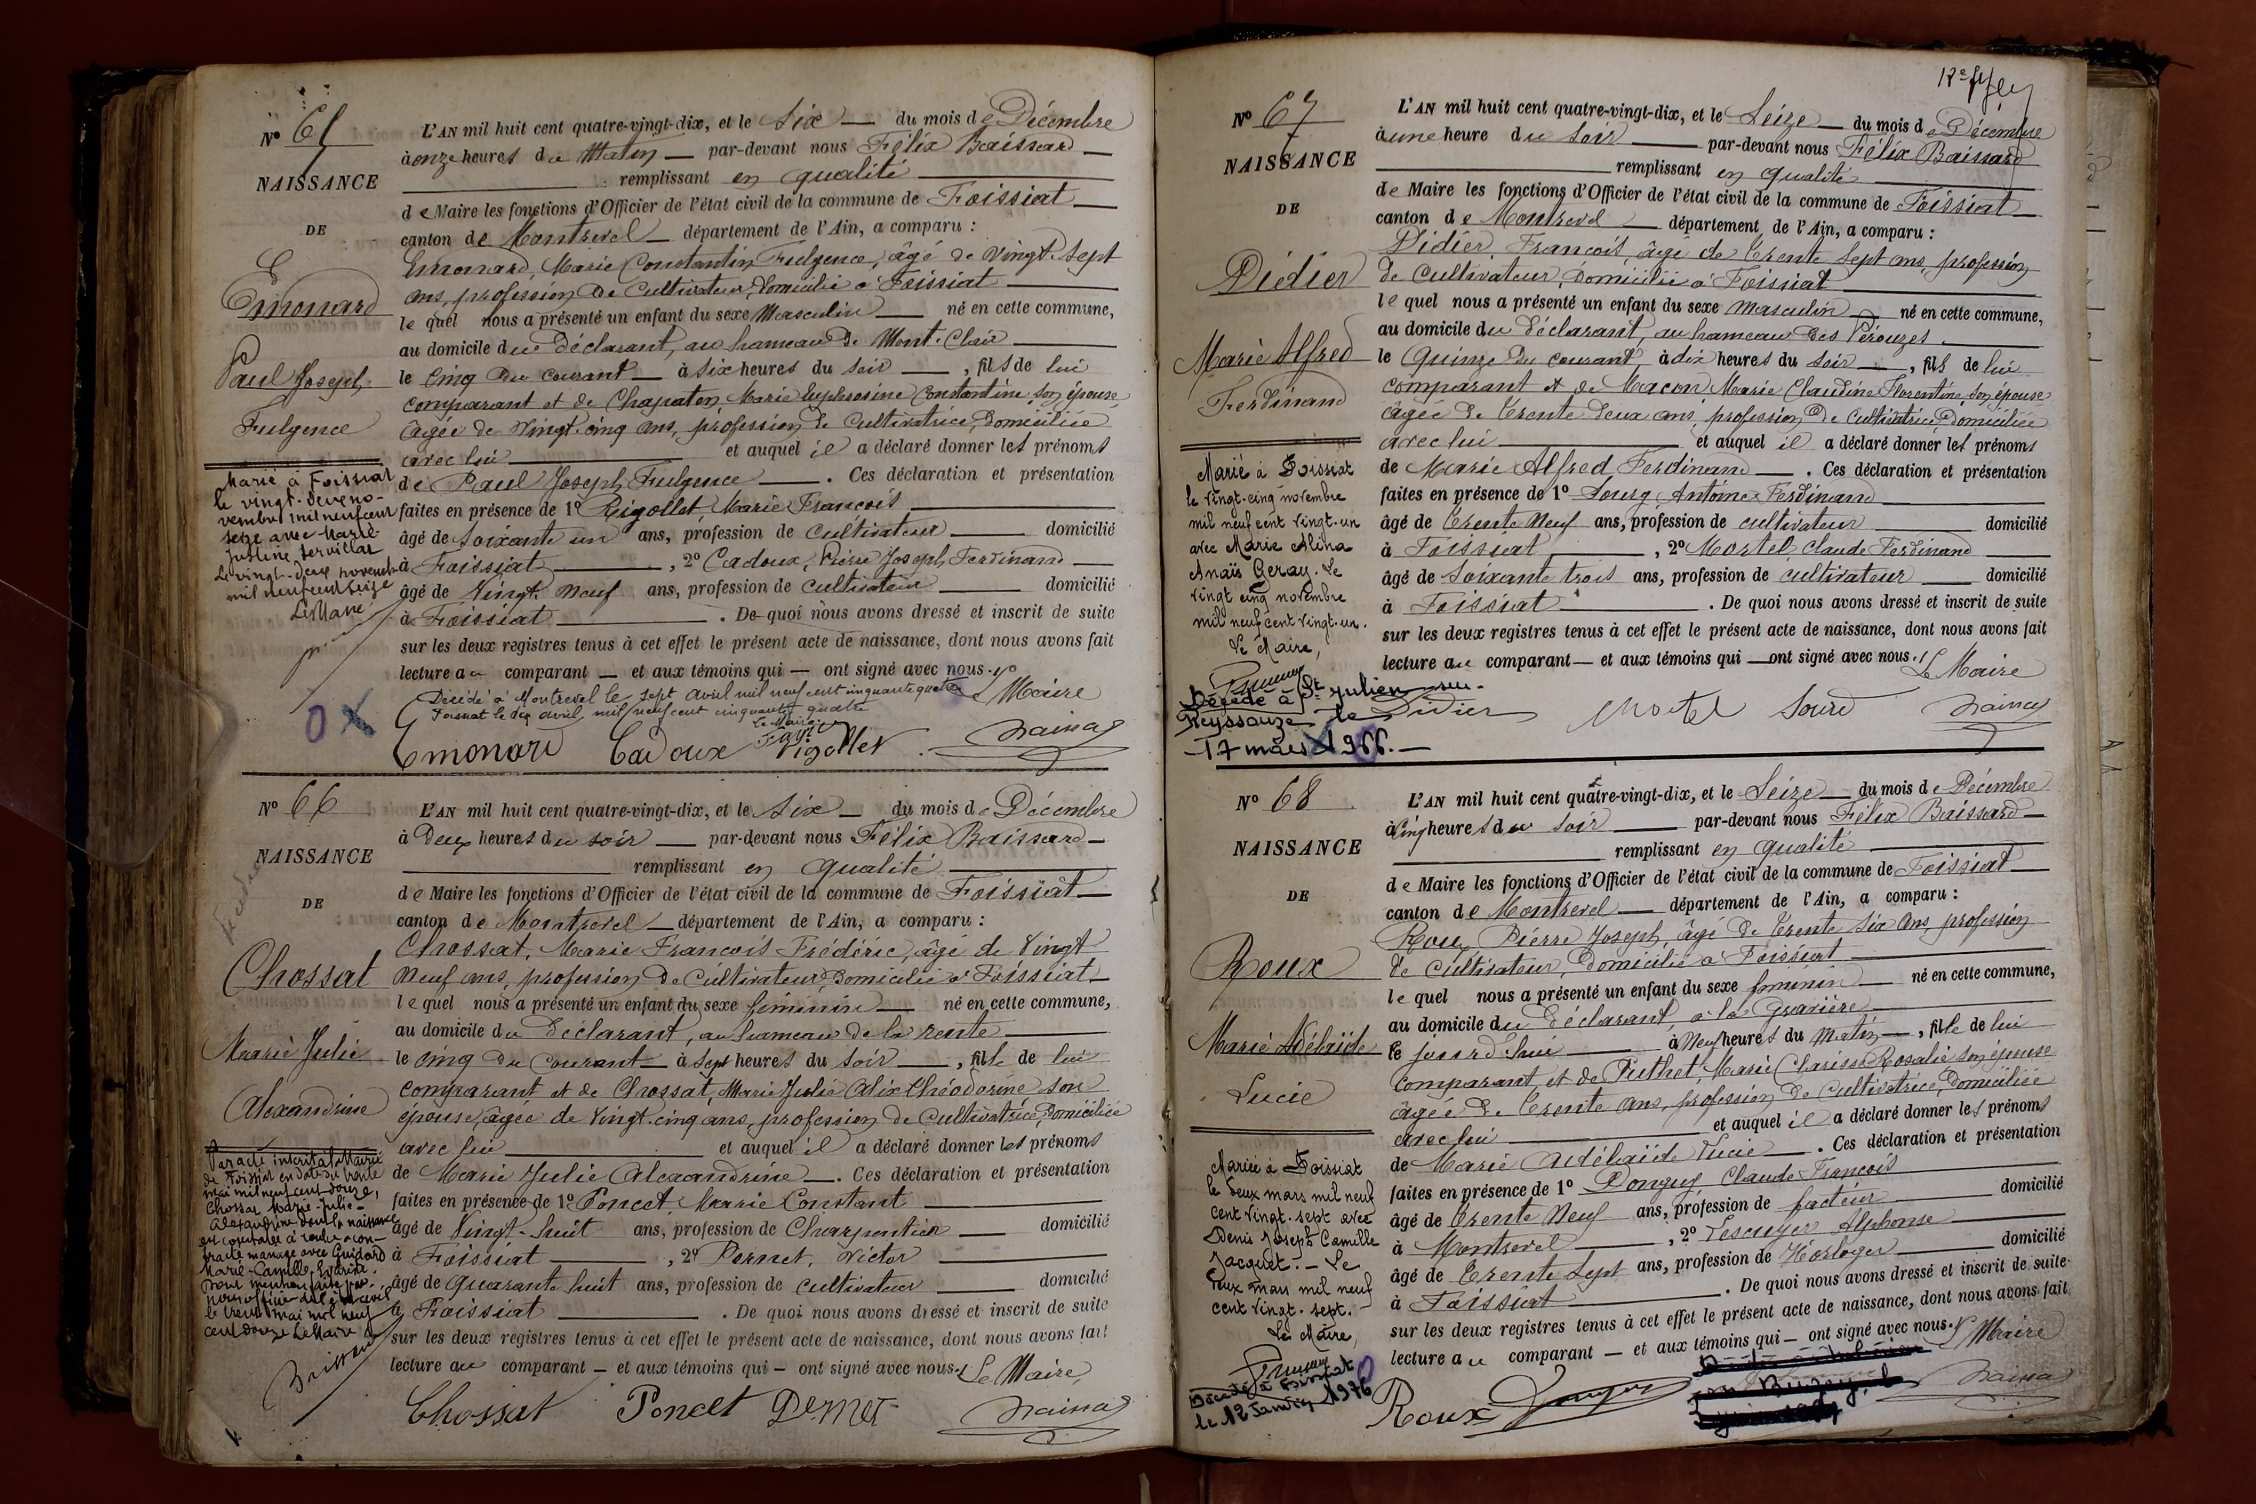 Nº 65
NAISSANCE
DE
Emonard
Paul Joseph
Fulgence
Marié à Foissiat
le vingt-deux no-
vembre mil neuf cent
seize avec Marie
Justine Servillat
Le vingt-deux novembre
mil neuf cent seize
Le Maire
L'AN mil huit cent quatre-vingt-dix, et le Six du mois de Décembre
à onze heures du Matin par-devant nous Félix Baissard
remplissant en qualité
de Maire les fonctions d'Officier de l'état civil de la commune de Foissiat
canton de Montrevel département de l'Ain, a comparu :
Emonard, Marie Constantin Fulgence, âgé de vingt-sept
ans, profession de Cultivateur, domicilié à Foissiat
lequel nous a présenté un enfant du sexe Masculin né en cette commune,
au domicile du déclarant, au hameau de Mont-Clair
le cinq du courant à six heures du soir, fils de lui
comparant et de Chapaton Marie Euphrosine Constantine son épouse
âgée de vingt-cinq ans, profession de cultivatrice, domiciliée
avec lui et auquel il a déclaré donner les prénoms
de Paul Joseph Fulgence. Ces déclaration et présentation
faites en présence de 1º Rigollet, Marie François
âgé de soixante un ans, profession de cultivateur domicilié
à Foissiat, 2º Cadoux, Pierre Joseph Ferdinand
âgé de Vingt-neuf ans, profession de cultivateur domicilié
à Foissiat. De quoi nous avons dressé et inscrit de suite
sur les deux registres tenus à cet effet le présent acte de naissance, dont nous avons fait
lecture au comparant et aux témoins qui ont signé avec nous.
Le Maire
Décédé à Montrevel le sept avril mil neuf cent cinquante quatre
Foissiat le dix avril mil neuf cent cinquante quatre
Le Maire
Emonard Cadoux Rigollet
Nº 66
NAISSANCE
DE
Chossat
Marie Julie
Alexandrine
Par acte inscrit à la Mairie
de Foissiat en date du trente
mai mil neuf cent douze,
Chossat Marie-Julie-
Alexandrine dont la naissance
est constatée ci-contre a con-
tracté mariage avec Guidard
Marie-Camille
L'AN mil huit cent quatre-vingt-dix, et le Six du mois de Décembre
à Deux heures du soir par-devant nous Félix Baissard
remplissant en qualité
de Maire les fonctions d'Officier de l'état civil de la commune de Foissiat
canton de Montrevel département de l'Ain, a comparu :
Chossat, Marie François Frédéric, âgé de Vingt
neuf ans, profession de Cultivateur, domicilié à Foissiat
lequel nous a présenté un enfant du sexe féminin né en cette commune,
au domicile du déclarant, au hameau de la rente
le cinq du courant à sept heures du soir, fille de lui
comparant et de Chossat, Marie Julie Alix Théodorine son
épouse, âgée de Vingt-cinq ans, profession de Cultivatrice, domiciliée
avec lui et auquel il a déclaré donner les prénoms
de Marie Julie Alexandrine. Ces déclaration et présentation
faites en présence de 1º Poncet, Marie Constant
âgé de Vingt-huit ans, profession de Charpentier domicilié
à Foissiat, 2º Pernet, Victor
âgé de Quarante huit ans, profession de cultivateur domicilié
à Foissiat. De quoi nous avons dressé et inscrit de suite
sur les deux registres tenus à cet effet le présent acte de naissance, dont nous avons fait
lecture au comparant et aux témoins qui ont signé avec nous.
Le Maire
Chossat Poncet Pernet
Nº 67
NAISSANCE
DE
Didier
Marie Alfred
Ferdinand
Marié à Foissiat
le vingt-cinq novembre
mil neuf cent vingt-un
avec Marie Alina
Anaïs Geray. Le
vingt cinq novembre
mil neuf cent vingt-un.
Le Maire,
Décédé à St Julien sur
Reyssouze le
17 mars 1966.
L'AN mil huit cent quatre-vingt-dix, et le Seize du mois de Décembre
à une heure du soir par-devant nous Félix Baissard
remplissant en qualité
de Maire les fonctions d'Officier de l'état civil de la commune de Foissiat
canton de Montrevel département de l'Ain, a comparu :
Didier, François, âgé de trente sept ans, profession
de cultivateur, domicilié à Foissiat
lequel nous a présenté un enfant du sexe masculin né en cette commune,
au domicile du déclarant, au hameau des Pérouzes
le Quinze du courant à dix heures du soir, fils de lui
comparant et de Macon Marie Claudine Florentine son épouse
âgée de trente deux ans, profession de Cultivatrice, domiciliée
avec lui et auquel il a déclaré donner les prénoms
de Marie Alfred Ferdinand. Ces déclaration et présentation
faites en présence de 1º Sourd, Antoine Ferdinand
âgé de trente neuf ans, profession de cultivateur domicilié
à Foissiat, 2º Mortel Claude Ferdinand
âgé de soixante trois ans, profession de cultivateur domicilié
à Foissiat. De quoi nous avons dressé et inscrit de suite
sur les deux registres tenus à cet effet le présent acte de naissance, dont nous avons fait
lecture au comparant et aux témoins qui ont signé avec nous.
Le Maire
Didier Mortel Sourd
Nº 68
NAISSANCE
DE
Roux
Marie Adélaïde
Lucie
Mariée à Foissiat
le deux mars mil neuf
cent vingt-sept avec
Denis Joseph Camille
Jacquet. Le
deux mars mil neuf
cent vingt-sept.
Le Maire,
Décédée à Foissiat
le 12 Janvier 1976
L'AN mil huit cent quatre-vingt-dix, et le Seize du mois de Décembre
à cinq heures du soir par-devant nous Félix Baissard
remplissant en qualité
de Maire les fonctions d'Officier de l'état civil de la commune de Foissiat
canton de Montrevel département de l'Ain, a comparu :
Roux Pierre Joseph, âgé de trente six ans, profession
de cultivateur, domicilié à Foissiat
lequel nous a présenté un enfant du sexe féminin né en cette commune,
au domicile du déclarant, à la
le jourd'hui à Neuf heures du Matin, fille de lui
comparant, et de Puthet, Marie Clarisse Rosalie son épouse
âgée de trente ans, profession de cultivatrice, domiciliée
avec lui et auquel il a déclaré donner les prénoms
de Marie Adélaïde Lucie. Ces déclaration et présentation
faites en présence de 1º Donguy Claude François
âgé de trente neuf ans, profession de facteur domicilié
à Montrevel, 2º Lescuyer Alphonse
âgé de trente sept ans, profession de Horloger domicilié
à Foissiat. De quoi nous avons dressé et inscrit de suite
sur les deux registres tenus à cet effet le présent acte de naissance, dont nous avons fait
lecture au comparant et aux témoins qui ont signé avec nous.
Le Maire
Roux